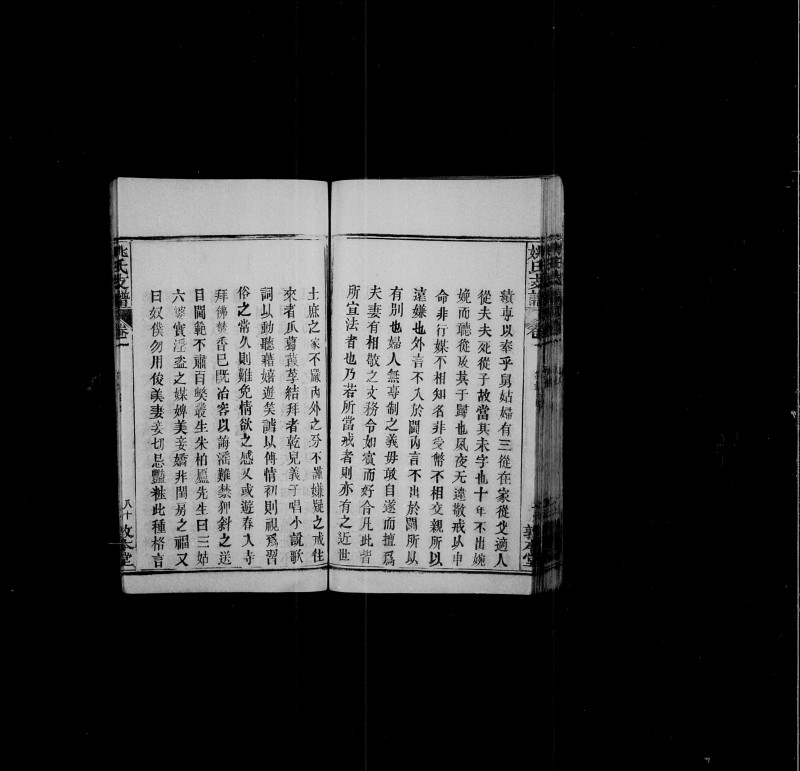 姚氏支譜
卷一
敦本堂
績專以奉乎舅姑婦有三從在家從父適人
從夫夫死從子故當其未字也十年不出婉
娩而聽從及其于歸也夙夜无違敬戒以申
命非行媒不相知名非受幣不相交親所以
遠嫌也外言不入於閫內言不出於閫所以
有別也婦人無專制之義毋敢自遂而擅爲
夫妻有相敬之文務令如賓而好合凡此皆
所宣法者也乃若所當戒者則亦有之近世
士庶之家不嚴內外之分不謹嫌疑之戒往
來者瓜葛葭莩結拜者乾兒義子唱小說歌
詞以動聽藉嬉遊笑謔以傳情初則視爲習
俗之常久則難免情欲之感又或遊春入寺
拜佛焚香已既冶容以誨淫難禁狎斜之送
目閫範不肅百弊叢生朱柏廬先生曰三姑
六婆實淫盜之媒婢美妾嬌非閨房之福又
曰奴僕勿用俊美妻妾切忌豔粧此種格言
姚氏支譜
卷一
八十
敦本堂